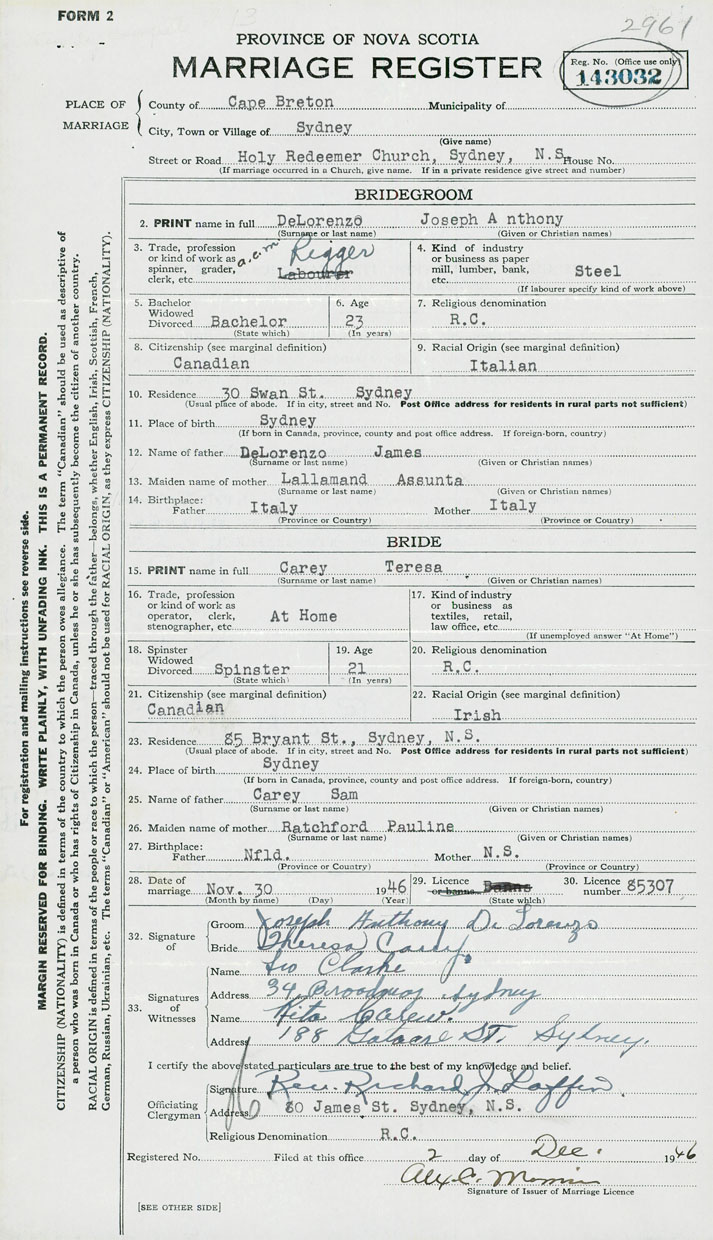 FORM 2
2961
PROVINCE OF NOVA SCOTIA
MARRIAGE REGISTER
Reg. No. (Office use only)
143032
PLACE OF MARRIAGE
County of Cape Breton Municipality of
City, Town or Village of Sydney
(Give name)
Street or Road Holy Redeemer Church, Sydney, N.S. House No.
(If marriage occurred in a Church, give name. If in a private residence give street and number)
BRIDEGROOM
2. PRINT name in full DeLorenzo Joseph A nthony
(Surname or last name) (Given or Christian names)
3. Trade, profession or kind of work as spinner, grader, clerk, etc. a.c.m Rigger Labourer
4. Kind of industry or business as paper mill, lumber, bank, etc. Steel
(If labourer specify kind of work above)
5. Bachelor Widowed Divorced Bachelor
(State which)
6. Age 23
(In years)
7. Religious denomination
R.C.
8. Citizenship (see marginal definition)
Canadian
9. Racial Origin (see marginal definition)
Italian
10. Residence 30 Swan St. Sydney
(Usual place of abode. If in city, street and No. Post Office address for residents in rural parts not sufficient)
11. Place of birth Sydney
(If born in Canada, province, county and post office address. If foreign-born, country)
12. Name of father DeLorenzo James
(Surname or last name) (Given or Christian names)
13. Maiden name of mother Lallamand Assunta
(Surname or last name) (Given or Christian names)
14. Birthplace: Father Italy Mother Italy
(Province or Country) (Province or Country)
BRIDE
15. PRINT name in full Carey Teresa
(Surname or last name) (Given or Christian names)
16. Trade, profession or kind of work as operator, clerk, stenographer, etc. At Home
17. Kind of industry or business as textiles, retail, law office, etc.
(If unemployed answer "At Home")
18. Spinster Widowed Divorced Spinster
(State which)
19. Age 21
(In years)
20. Religious denomination
R.C.
21. Citizenship (see marginal definition)
Canadian
22. Racial Origin (see marginal definition)
Irish
23. Residence 85 Bryant St., Sydney, N.S.
(Usual place of abode. If in city, street and No. Post Office address for residents in rural parts not sufficient)
24. Place of birth Sydney
(If born in Canada, province, county and post office address. If foreign-born, country)
25. Name of father Carey Sam
(Surname or last name) (Given or Christian names)
26. Maiden name of mother Ratchford Pauline
(Surname or last name) (Given or Christian names)
27. Birthplace: Father Nfld. Mother N.S.
(Province or Country) (Province or Country)
28. Date of marriage Nov. 30 1946
(Month by name) (Day) (Year)
29. Licence or banns Banns
(State which)
30. Licence number 85307
32. Signature of
Groom Joseph Anthony DeLorenzo
Bride Theresa Carey
33. Signatures of Witnesses
Name Leo Clarke
Address 34 Broadway Sydney
Name Rita
Address 188 St. Sydney.
I certify the above stated particulars are true to the best of my knowledge and belief.
Officiating Clergyman
Signature Rev. Richard J. Laffin
Address 80 James St. Sydney, N.S.
Religious Denomination R.C.
Registered No. Filed at this office 2 day of Dec. 1946
Alex. C.
Signature of Issuer of Marriage Licence
[SEE OTHER SIDE]
For registration and mailing instructions see reverse side.
MARGIN RESERVED FOR BINDING. WRITE PLAINLY, WITH UNFADING INK. THIS IS A PERMANENT RECORD.
CITIZENSHIP (NATIONALITY) is defined in terms of the country to which the person owes allegiance. The term "Canadian" should be used as descriptive of
a person who was born in Canada or who has rights of Citizenship in Canada, unless he or she has subsequently become the citizen of another country.
RACIAL ORIGIN is defined in terms of the people or race to which the person—traced through the father—belongs, whether English, Irish, Scottish, French,
German, Russian, Ukrainian, etc. The terms "Canadian" or "American" should not be used for RACIAL ORIGIN, as they express CITIZENSHIP (NATIONALITY).